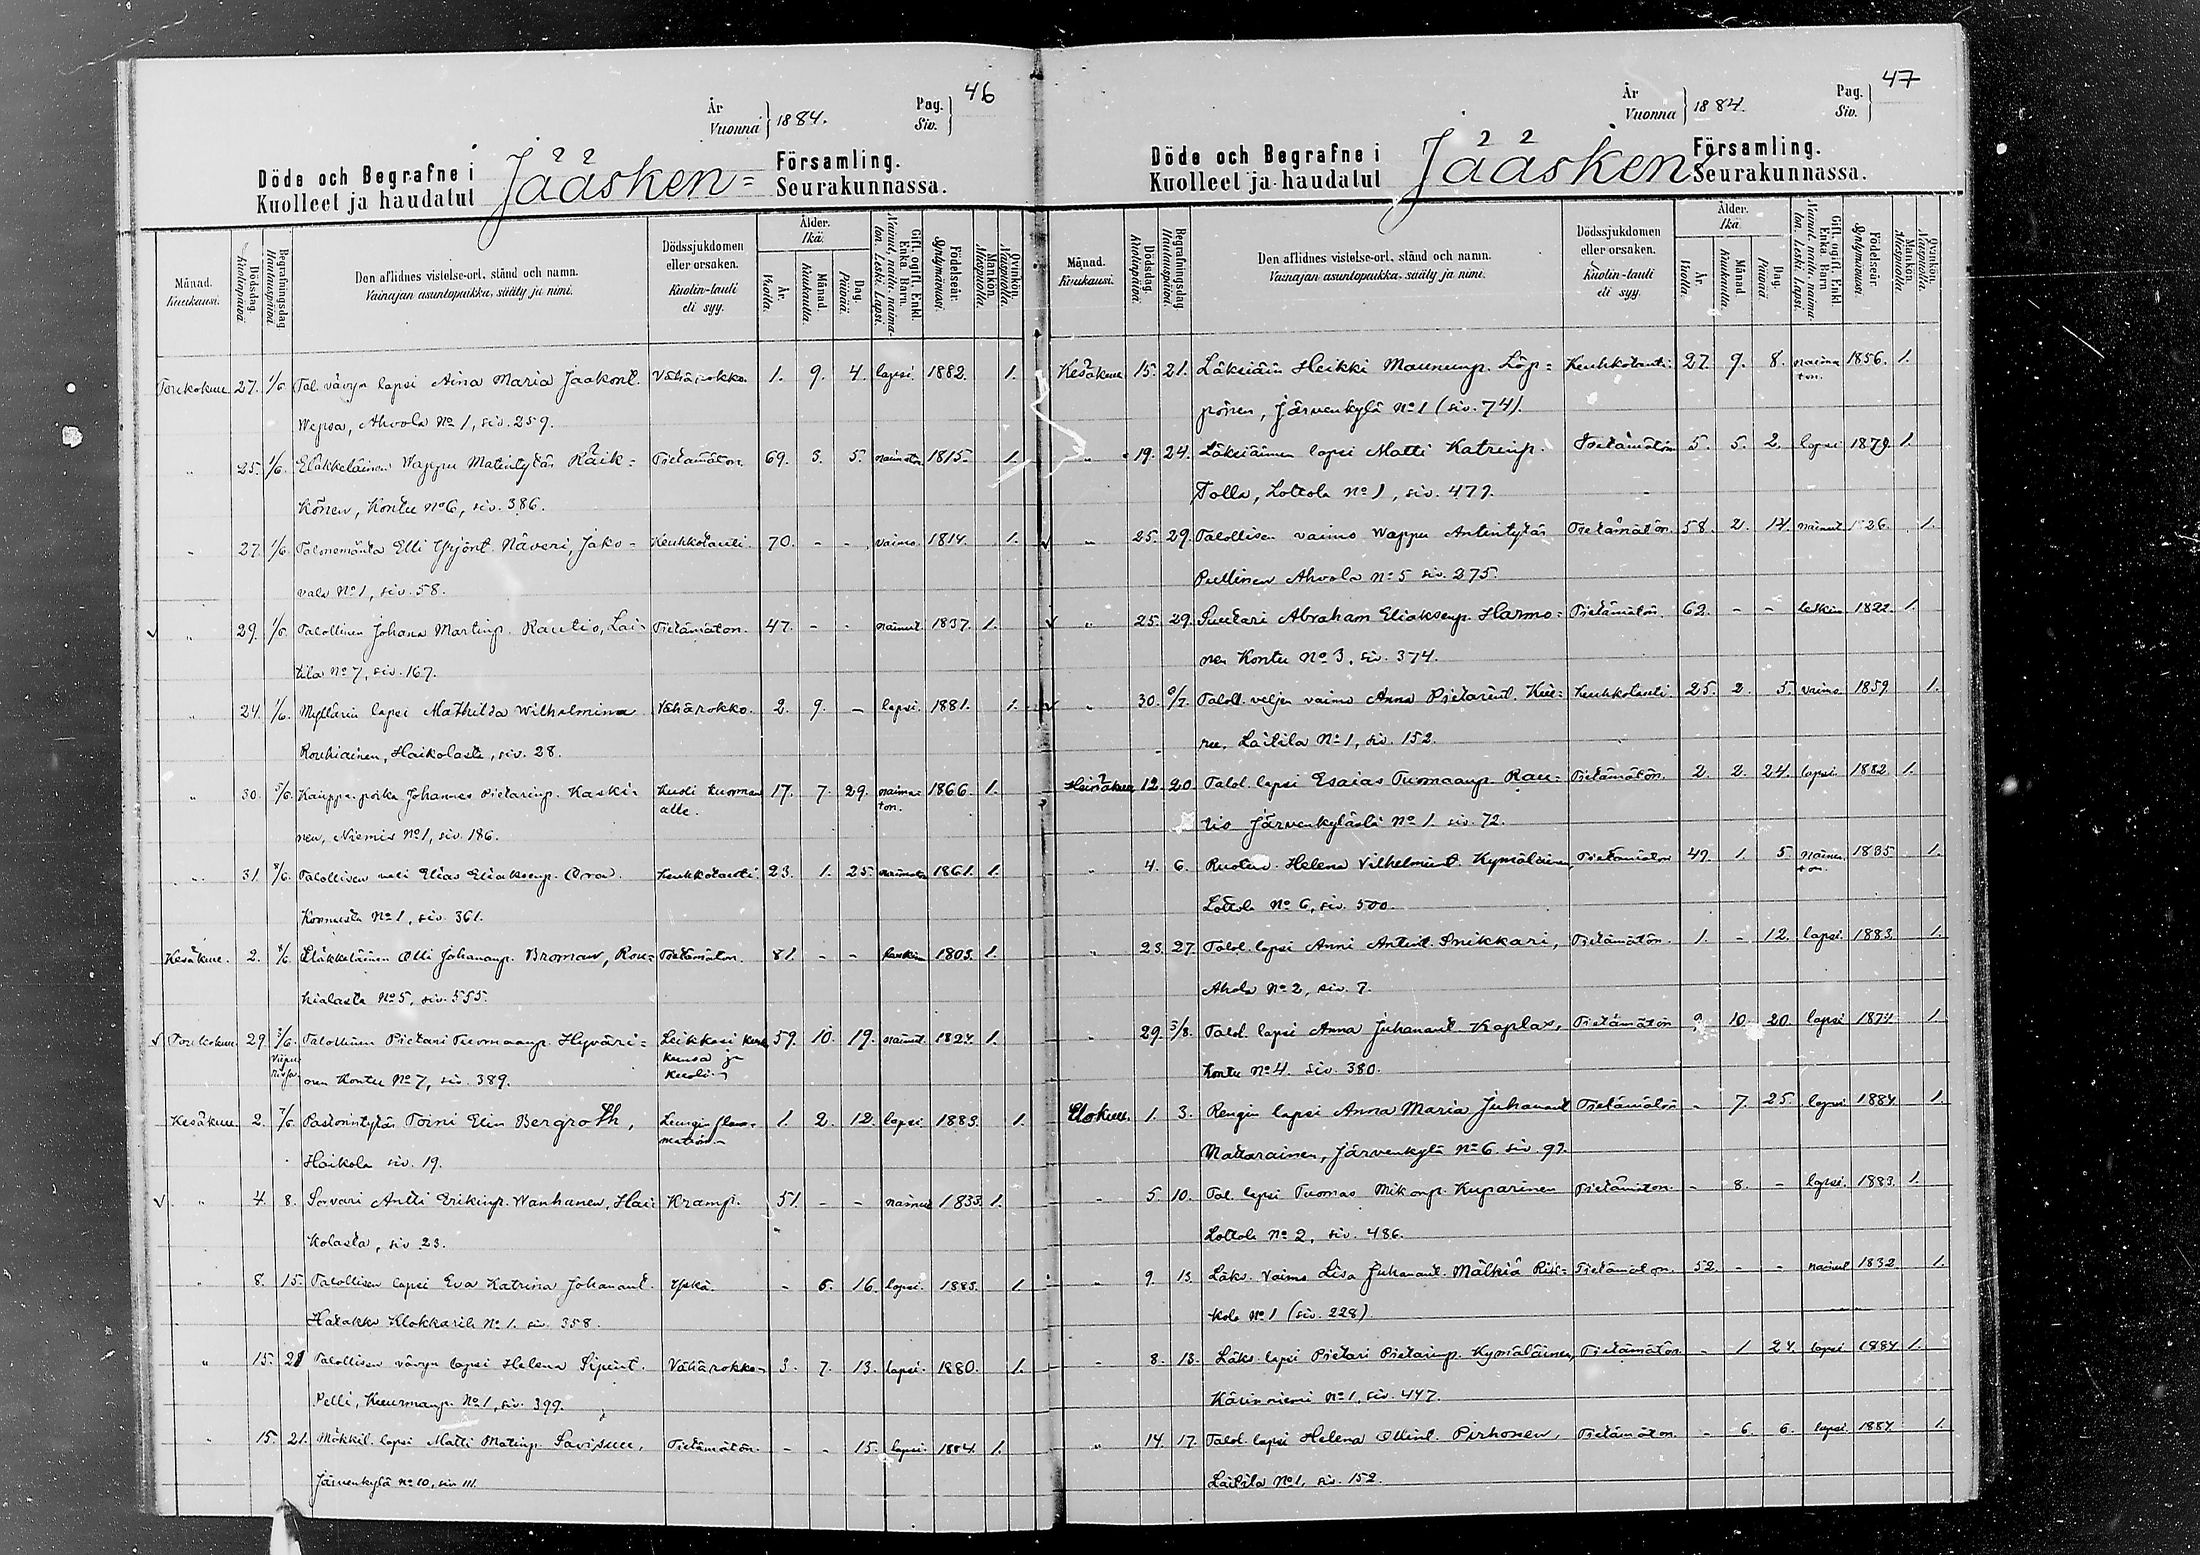 46
År
Vuonna } 1884.
Pag.
Siv.
Döde och Begrafne i
Kuolleet ja haudatut
Jääsken=
Församling.
Seurakunnassa.
Månad. Kuukausi.
Dödsdag. Kuolinpäivä.
Begrafningsdag. Hautauspäivä.
Den aflidnes vistelse-ort, stånd och namn.
Vainajan asuntopaikka, sääty ja nimi.
Dödssjukdomen eller orsaken.
Kuolin-tauti eli syy.
Ålder. Ikä.
År. Vuotta.
Månad. Kuukautta.
Dag. Päivää.
Gift, ogift, Enkl. Enka. Barn.
Nainut, naitu, naima-ton. Leski. Lapsi.
Födelseår. Syntymävuosi.
Mankön. Miespuolia.
Qvinkön. Naispuolia.
Toukokuu. 27. 1/6. Tal. vävyn lapsi Aina Maria Jaakont. Vähärokko. 1. 9. 4. lapsi. 1882. 1.
Wepsa, Ahvola No 1, siv. 259.
" 25. 1/6. Eläkkeläinen Wappu Matintytär Räik= Tietämätön 69. 3. 5. naimaton 1815. 1.
könen, Kontu No 6, siv. 386.
" 27. 1/6. Talonemäntä Elli Yrjönt. Näveri, Jako= Keuhkotauti. 70. - - vaimo. 1814. 1.
vala No 1, siv. 58.
" 29. 1/6. Talollinen Johana Martinp. Rautio, Lai= Tietämätön. 47. - - nainut 1837. 1.
tila No 7, siv. 167.
" 24. 1/6. Myllärin lapsi Mathilda Wilhelmina Vähärokko. 2. 9. - lapsi. 1881. 1.
Rouhiainen, Haikolasta, siv. 28.
" 30. 3/6. Kauppa-poika Johannes Pietarinp. Kaski= Kuoli kuorman 17. 7. 29. naima= 1866. 1.
nen, Niemis No 1, siv. 186. alle. ton.
" 31. 8/6. Talollisen veli Elias Eliaksenp. Orava. Keuhkotauti. 23. 1. 25. naimaton 1861. 1.
Konnusta No 1, siv. 361.
Kesäkuu. 2. 8/6. Eläkkeläinen Olli Johananp. Broman, Rou= Tietämätön. 81. - - leskim 1803. 1.
hialasta No 5, siv. 555.
Toukokuu 29. 3/6. Talollinen Pietari Tuomaanp. Hyväri= Leikkasi kurk 59. 10. 19. nainut. 1824. 1.
nen Kontu No 7, siv. 389. kunsa ja
kuoli.
Kesäkuu. 2. 7/6. Pastorintytär Toini Elin Bergroth, Lunginflam= 1. 2. 12. lapsi. 1883. 1.
Haikola siv. 19. mation.
" 4. 8. Sorvari Antti Erikinp. Wanhanen, Hai= Kramp. 51. - - nainut 1833. 1.
kolasta, siv. 23.
" 8. 15. Talollisen lapsi Eva Katrina Johanant. Yskä. - 6. 16. lapsi. 1883. 1.
Hatakka Klokkarila No 1. siv. 358.
" 15. 21 Talollisen vävyn lapsi Helena Sipint. Vähärokko. 3. 7. 13. lapsi. 1880. 1.
Pelli, Kuurmanp. No 1, siv. 399.
" 15. 21. Mökkil. lapsi Matti Matinp. Savisuu, Tietämätön. - - 15. lapsi. 1884. 1.
Järvenkylä No 10, siv. 111.
47
År
Vuonna } 1884.
Pag.
Siv.
Döde och Begrafne i
Kuolleet ja haudatut
Jääsken
Församling.
Seurakunnassa.
Månad. Kuukausi.
Dödsdag. Kuolinpäivä.
Begrafningsdag. Hautauspäivä.
Den aflidnes vistelse-ort, stånd och namn.
Vainajan asuntopaikka, sääty ja nimi.
Dödssjukdomen eller orsaken.
Kuolin-tauti eli syy.
Ålder. Ikä.
År. Vuotta.
Månad. Kuukautta.
Dag. Päivää.
Gift, ogift, Enkl. Enka. Barn
Nainut, naitu, naima-ton. Leski. Lapsi.
Födelseår. Syntymävuosi.
Mankön. Miespuolia.
Qvinkön. Naispuolia.
Kesäkuu 15. 21. Läksiäin Heikki Maununp. Löp= Keuhkotauti. 27. 9. 8. naima 1856. 1.
pönen, Järvenkylä No 1 (siv. 74). ton.
" 19. 24. Läksiäimen lapsi Matti Katrinp. Tietämätön 5. 5. 2. lapsi 1879 1.
Tolla, Lottola No 1, siv. 479.
" 25. 29. Talollisen vaimo Wappu Antintytär Tietämätön. 58. 2. 14. nainut 1826. 1.
Pullinen Ahvola No 5 siv. 275.
" 25. 29. Suutari Abraham Eliaksenp. Harmo= Tietämätön. 62. - - leskim 1822. 1.
nen Kontu No 3, siv. 374.
" 30. 6/7. Taloll. veljen vaimo Anna Pietarint. Kuu= Keuhkotauti. 25. 2. 5. vaimo 1859. 1.
ru. Laitila No 1, siv. 152.
Heinäkuu 12. 20. Talol. lapsi Esaias Tuomaanp. Rau= Tietämätön. 2. 2. 24. lapsi 1882 1.
tio Järvenkylästä No 1. siv. 72.
" 4. 6. Ruotiv. Helena Vilhelmint. Kymäläinen Tietämätön 49. 1. 5. naima 1835 1.
Lottola No 6, siv. 500. ton.
" 23. 27. Talol. lapsi Anni Antint. Snikkari, Tietämätön. 1. - 12. lapsi 1883. 1.
Ahola No 2, siv. 7.
" 29. 3/8. Talol. lapsi Anna Juhanant. Kaplas, Tietämätön 9. 10. 20. lapsi 1874. 1.
Kontu No 4. siv. 380.
Elokuu. 1. 3. Rengin lapsi Anna Maria Juhanant Tietämätön - 7. 25. lapsi 1884 1.
Mattarainen, Järvenkylä No 6. siv. 97.
" 5 10. Tal. lapsi Tuomas Mikonp. Kuparinen Tietämätön. - 8. - lapsi. 1883. 1.
Lottola No 2, siv. 486.
" 9. 13. Läks. vaimo Lisa Juhanant. Mälkiä Räi= Tietämätön. 52 - - nainut 1832 1.
kola No 1 (siv. 228)
" 8. 13. Läks. lapsi Pietari Pietarinp. Kymäläinen, Tietämätön - 1 24. lapsi 1884 1.
Kärinniemi No 1, siv. 447.
" 14. 17. Talol. lapsi Helena Ollint. Pirhonen, Tietämätön - 6. 6. lapsi. 1884. 1.
Laitila No 1, siv. 152.